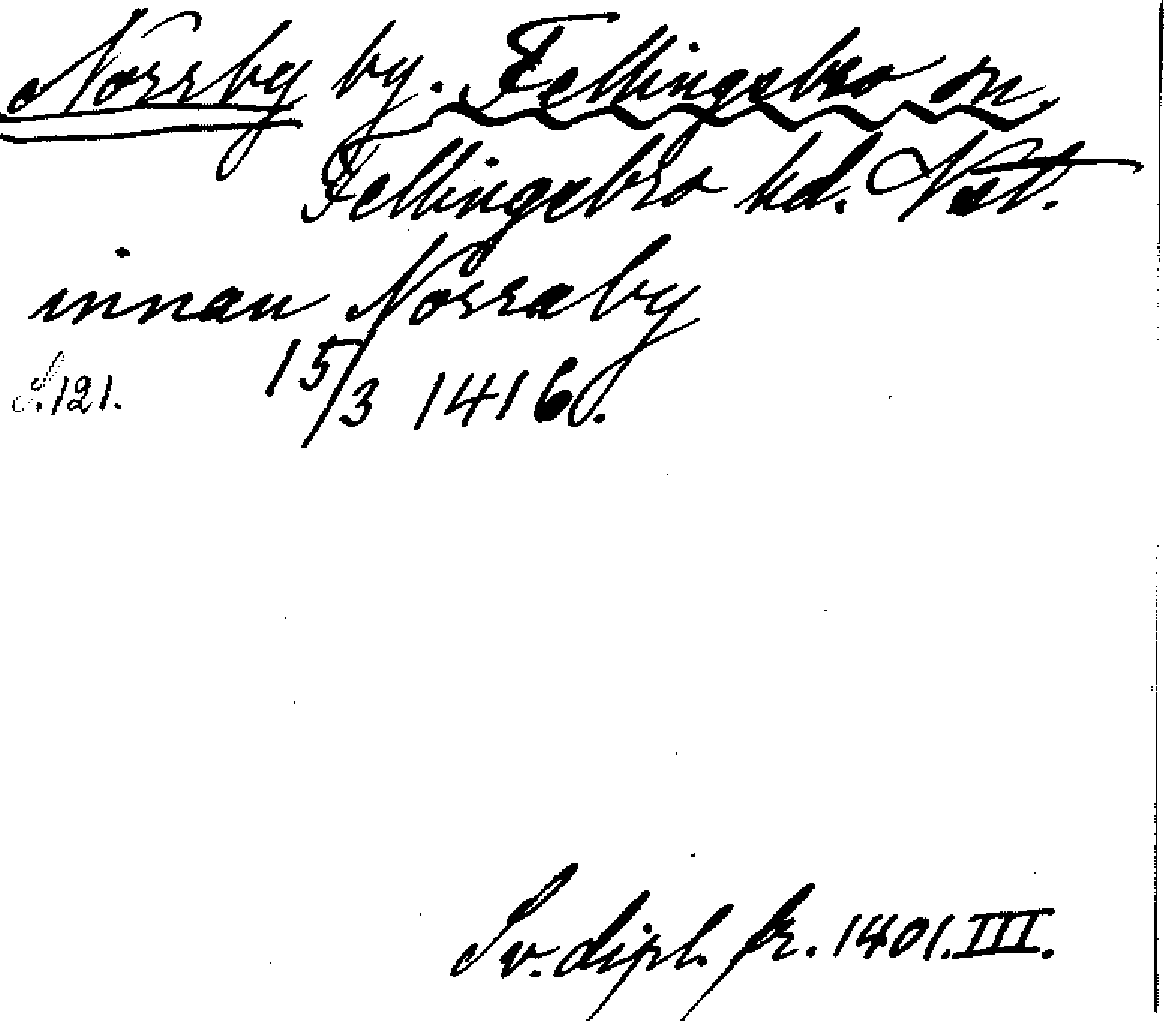 Norrby by. Fellingsbro sn.
Fellingsbro hd. Vstl.
innan Norraby
S. 121. 15/3 1416.
Sv. dipl. fr. 1401. III.